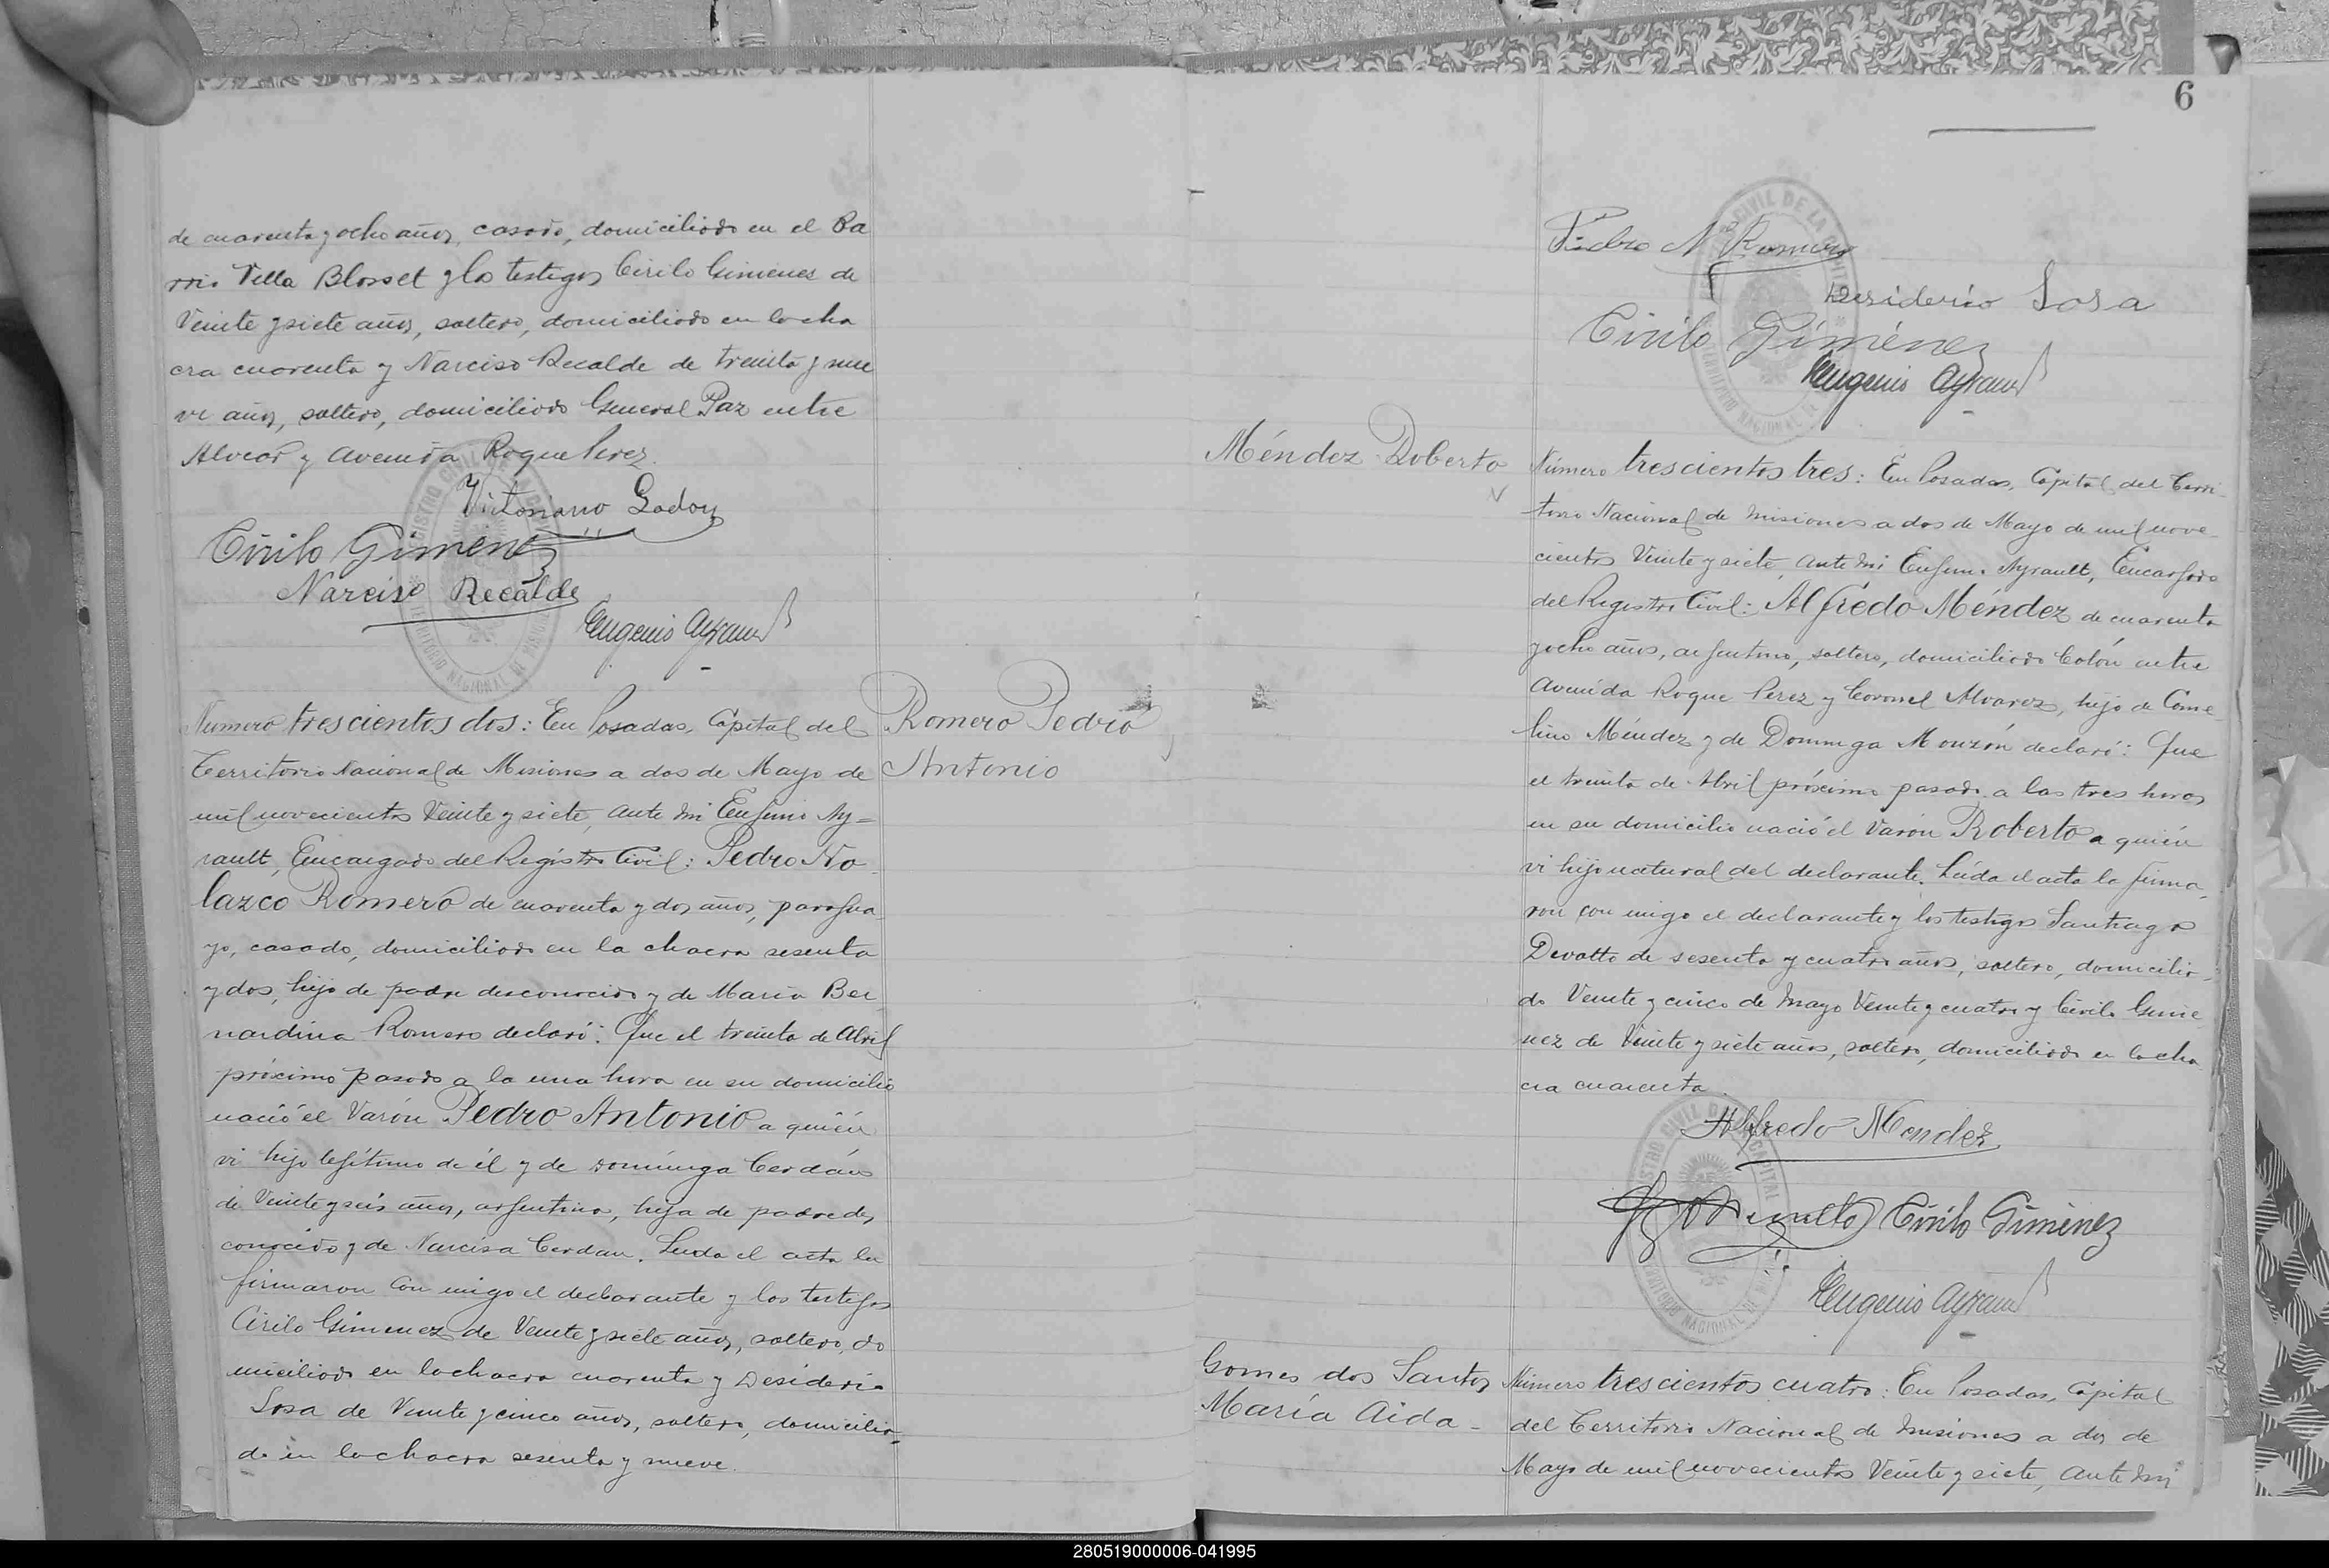 de cuarenta y ocho años, casado, domiciliado en el Ba
rrio Villa Blosset y los testigos Cirilo Gimenez de
Veinte y siete años, soltero, domiciliado en la cha
cra cuarenta y Narciso Recalde de treinta y nue
ve años, soltero, domiciliado General Paz entre
Alvear y Avenida Roque Perez.
Victoriano Godoy
Cirilo Gimenez
Narciso Recalde
Eugenio Ayrault
Número trescientos dos: En Posadas, Capital del
Romero Pedro
Antonio
Territorio Nacional de Misiones a dos de Mayo de
mil novecientos Veinte y siete, ante mi Eugenio Ay=
rault, Encargado del Registro Civil: Pedro No
lazco Romero de cuarenta y dos años, paragua
yo, casado, domiciliado en la chacra sesenta
y dos, hijo de padre desconocido y de María Ber
nardina Romero declaró: Que el treinta de Abril
próximo pasado a la una hora en su domicilio
nació el Varón Pedro Antonio a quién
vi hijo legítimo de él y de Dominga Cerdán
de Veinte y seis años, argentina, hija de padre des
conocido y de Narcisa Cerdan. Leida el acta la
firmaron con migo el declarante y los testigos
Cirilo Gimenez de Veinte y siete años, soltero, do
miciliado en la chacra cuarenta y Desiderio
Sosa de Veinte y cinco años, soltero, domicilia=
do en la chacra sesenta y nueve.
6
Pedro N Romero
Desiderio Sosa
Cirilo Giménez
Eugenio Ayrault
Méndez Roberto
Número trescientos tres: En Posadas, Capital del Terri-
torio Nacional de Misiones a dos de Mayo de mil nove-
cientos Veinte y siete, ante mi Eugenio Ayrault, Encargado
del Registro Civil: Alfredo Méndez de cuarenta
y ocho años, argentino, soltero, domiciliado Colón entre
Avenida Roque Perez y Coronel Alvarez, hijo de Came-
lino Méndez y de Dominga Monzón declaró: Que
el treinta de Abril próximo pasado a las tres horas
en su domicilio nació el Varón Roberto a quién
vi hijo natural del declarante. Leida el acta la firma
ron con migo el declarante y los testigos Santiago
Devotto de sesenta y cuatro años, soltero, domicilia-
do Veinte y cinco de Mayo Veinte y cuatro y Cirilo Gime
nez de Veinte y siete años, soltero, domiciliado en la cha
cra cuarenta.
Alfredo Mendez
Cirilo Gimenez
Eugenio Ayrault
Gomes dos Santos
María Aida -
Número trescientos cuatro: En Posadas, Capital
del Territorio Nacional de Misiones a dos de
Mayo de mil novecientos Veinte y siete, ante mi
280519000006-041995